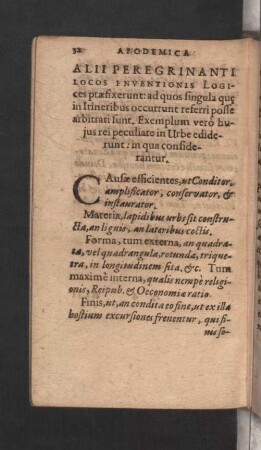 32 APODEMICA
ALII PEREGRINANTI
LOCOS ENVENTIONIS LOGI-
ces præfixerunt: ad quos singula quę
in Itineribus occurrunt referri posse
arbitrati sunt. Exemplum verò hu-
jus rei peculiare in Urbe edide-
runt: in qua conside-
rantur.
CAusæ efficientes, ut Conditor,
amplificator, conservator, &
instaurator.
Materia, lapidibus urbs sit constru-
cta, an lignis, an lateribus coctis.
Forma, tum externa, an quadra-
ta, vel quadrangula, rotunda, trique-
tra, in longitudinem sita, &c. Tum
maximè interna, qualis nempè religi-
onis, Reipub. & Oeconomiæ ratio.
Finis, ut, an condita eo fine, ut ex illa
hostium excursiones frenentur, qui fi-
nis so-